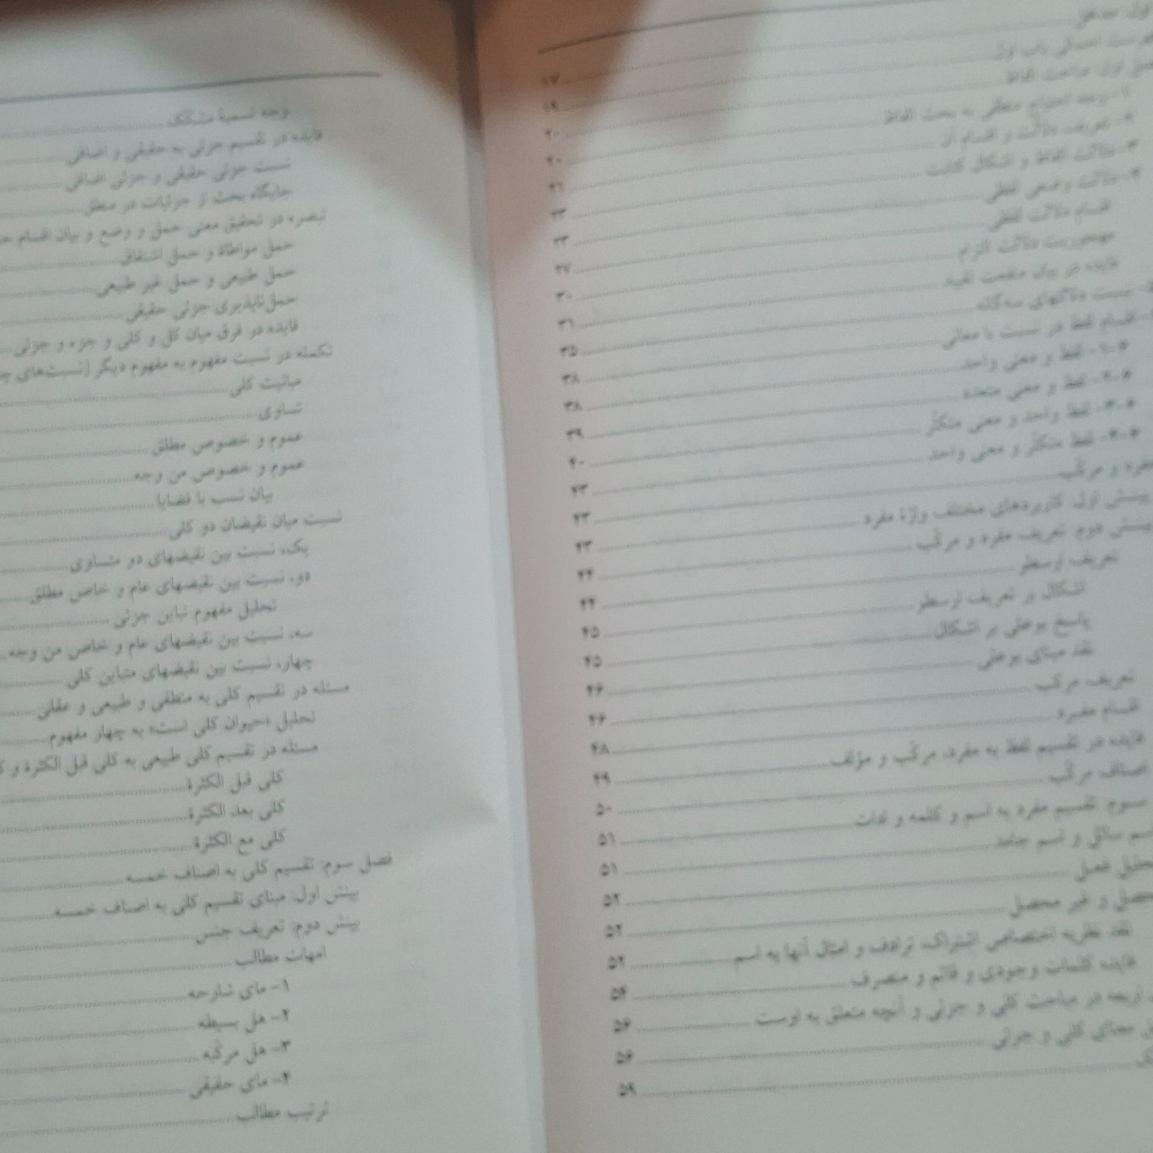 ۱۷
۱۹ فصل اول: مباحث الفاظ
۲۰ ۱- وجه احتیاج منطقی به بحث الفاظ
۲۰ ۲- تعریف دلالت و اقسام آن
۲۱ ۳- دلالت الفاظ و اشکال کتابت
۲۳ ۴- دلالت وضعی لفظی
۲۳ اقسام دلالت لفظی
۲۷ مهجوریت دلالت التزام
۳۰ فایده در بیان منفعت تقیید
۳۱ نسبت دلالتهای سه‌گانه
۳۵ اقسام لفظ در نسبت با معانی
۳۸ لفظ و معنی واحد
۳۸ لفظ و معنی متعدد
۳۹ لفظ واحد و معنی متکثّر
۴۰ لفظ متکثّر و معنی واحد
۴۳ مفرد و مرکّب
۴۳ بینش اول: کاربردهای مختلف واژهٔ مفرد
۴۳ بینش دوم: تعریف مفرد و مرکّب
۴۴ تعریف ارسطو
۴۴ اشکال بر تعریف ارسطو
۴۵ پاسخ بوعلی بر اشکال
۴۵ نقد مبنای بوعلی
۴۶ تعریف مرکب
۴۶ اقسام مفرد
۴۸ فایده در تقسیم لفظ به مفرد، مرکّب و مؤلف
۴۹ اصناف مرکّب
۵۰ سوم: تقسیم مفرد به اسم و کلمه و ادات
۵۱ اسم سائل و اسم جامد
۵۱ تحلیل فعل
۵۲ محصل و غیر محصل
۵۲ نقد نظریه اختصاص اشتراک، ترادف و امثال آنها به اسم
۵۲ فایده کلمات وجودی و قائم و متصرف
۵۴ در مباحث کلی و جزئی و آنچه متعلق به اوست
۵۶ معنای کلی و جزئی
۵۶
۵۹
وجه تسمیهٔ مشکک
فایده در تقسیم جزئی به حقیقی و اضافی
نسبت جزئی حقیقی و جزئی اضافی
جایگاه بحث از جزئیات در منطق
تبصره در تحقیق معنی حمل و وضع و بیان اقسام
حمل مواطاة و حمل اشتقاق
حمل طبیعی و حمل غیر طبیعی
حمل‌ناپذیری جزئی حقیقی
فایده در فرق میان کل و کلی و جزء و جزئی
تکمله در نسبت مفهوم به مفهوم دیگر (نسبت‌های
مباینت کلی
تساوی
عموم و خصوص مطلق
عموم و خصوص من وجه
بیان نسب با قضایا
نسبت میان نقیضان دو کلی
یک، نسبت بین نقیضهای دو متساوی
دو، نسبت بین نقیضهای عام و خاص مطلق
تحلیل مفهوم تباین جزئی
سه، نسبت بین نقیضهای عام و خاص من وجه
چهار، نسبت بین نقیضهای متباین کلی
مسئله در تقسیم کلی به منطقی و طبیعی و عقلی
تحلیل «حیوان کلی است» به چهار مفهوم
مسئله در تقسیم کلی طبیعی به کلی قبل الکثرة و
کلی قبل الکثرة
کلی بعد الکثرة
کلی مع الکثرة
فصل سوم: تقسیم کلی به اصناف خمسه
بینش اول: مبنای تقسیم کلی به اصناف خمسه
بینش دوم: تعریف جنس
امهات مطالب
۱- مای شارحه
۲- هل بسیطه
۳- هل مرکّبه
۴- مای حقیقی
ترتیب مطالب